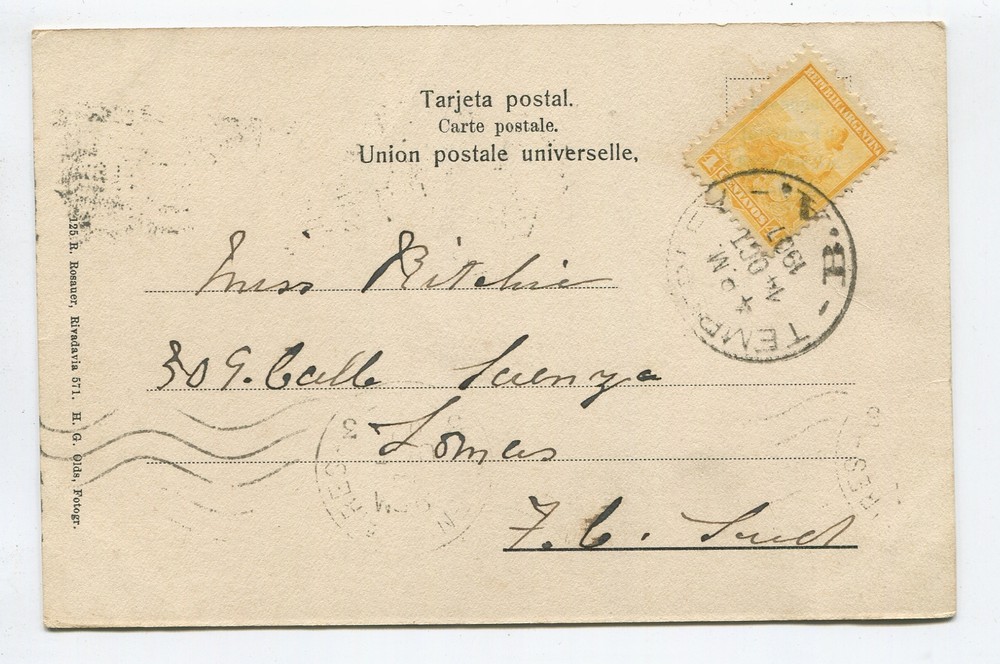 Tarjeta postal.
Carte postale.
Union postale universelle,
REPUBLICA ARGENTINA
4 CENTAVOS
TEMPERLEY
B. A.
14 OCT
1907
P M
Miss Ritchie
309. Calle Saenza
Lomas
F. C. Sud
125. R. Rosauer, Rivadavia 571. H. G. Olds, Fotogr.